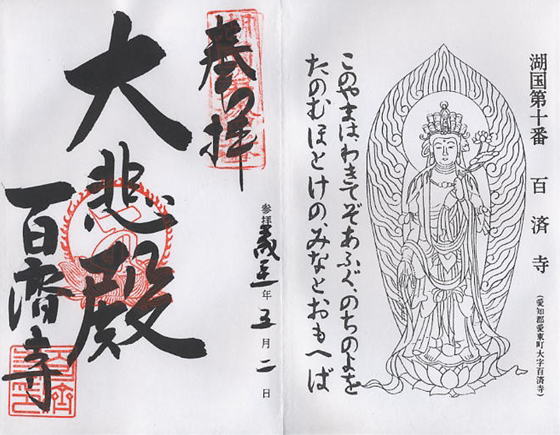 湖国第十番　百済寺
(愛知郡愛東町大字百済寺)
このやまは、わきてぞあふぐ、のちのよを
たのむほとけの、みなとおもへば
奉拝
参拝　年五月二日
大悲殿
百済寺